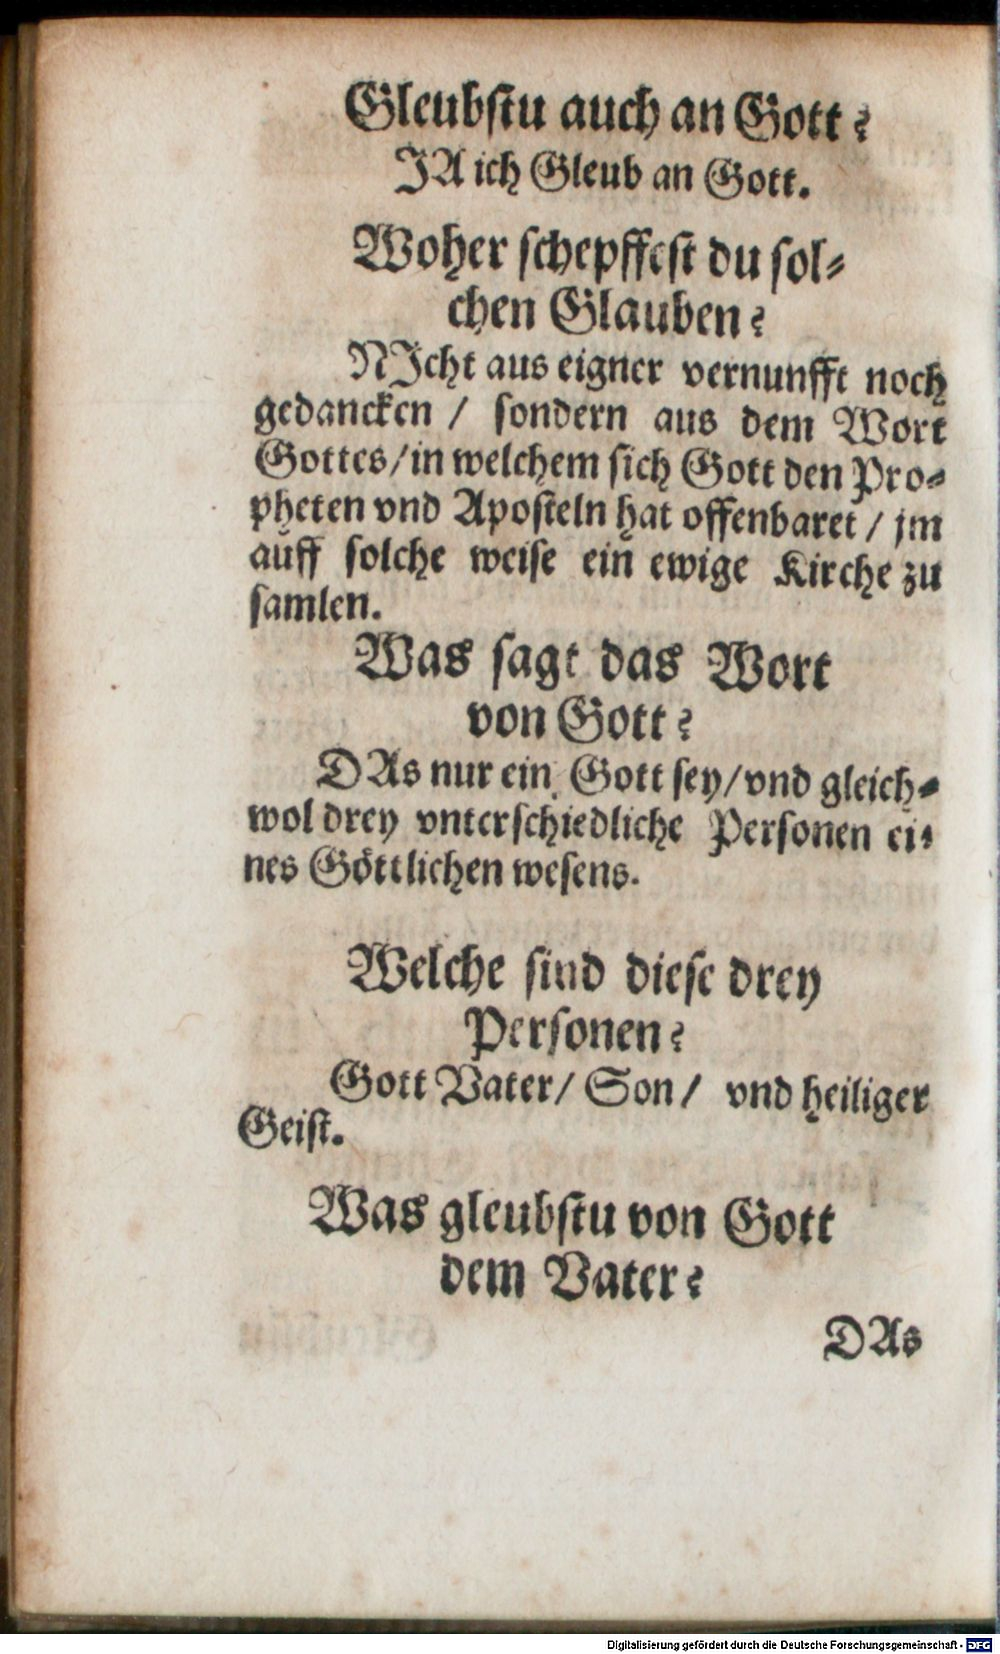 Gleubstu auch an Gott?
JA ich Gleub an Gott.
Woher schepffest du sol-
chen Glauben?
NJcht aus eigner vernunfft noch
gedancken / sondern aus dem Wort
Gottes/in welchem sich Gott den Pro-
pheten vnd Aposteln hat offenbaret / jm
auff solche weise ein ewige Kirche zu
samlen.
Was sagt das Wort
von Gott?
DAs nur ein Gott sey/vnd gleich-
wol drey vnterschiedliche Personen ei-
nes Göttlichen wesens.
Welche sind diese drey
Personen?
Gott Vater/ Son/ vnd heiliger
Geist.
Was gleubstu von Gott
dem Vater?
DAs
Digitalisierung gefördert durch die Deutsche Forschungsgemeinschaft - DFG